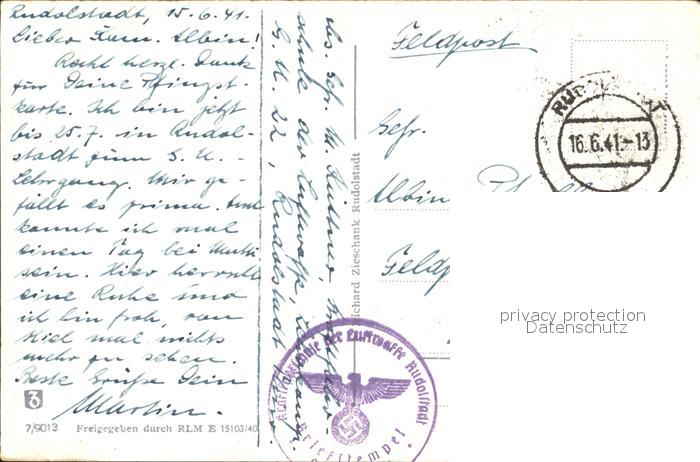 Rudolstadt, 15.6.41.
Lieber Kam. Albin!
Recht herzl. Dank
für Deine Pfingst-
karte. Ich bin jetzt
bis 25.7. in Rudol-
stadt zum G. U. -
Lehrgang. Mir ge-
fällt es prima. Auch
konnte ich mal
einen Tag bei Mutti
sein. Hier herrscht
eine Ruhe und
ich bin froh, von
Kiel mal nichts
mehr zu sehen.
Beste Grüße Dein
Martin.
7/9013 Freigegeben durch RLM E 15103/40
Abs. Gefr. M.
schule der Luftwaffe,
G. U. 22, Rudolstadt
Richard Zieschank Rudolstadt
Feldpost
Gefr.
Albin
Feldp
RUDOL
16.6.41.-13
der Luftwaffe Rudolstadt
Briefstempel
privacy protection
Datenschutz